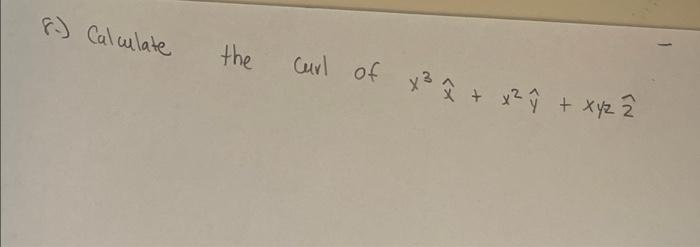 8.) Calculate the curl of x³ x̂ + x² ŷ + xyz ẑ